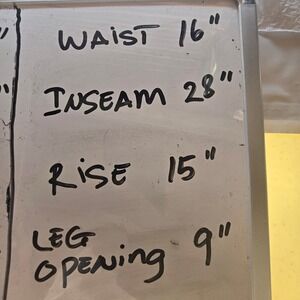 WAiST 16"
INSEAM 28"
RiSE 15"
LEG
OPENiNg 9"